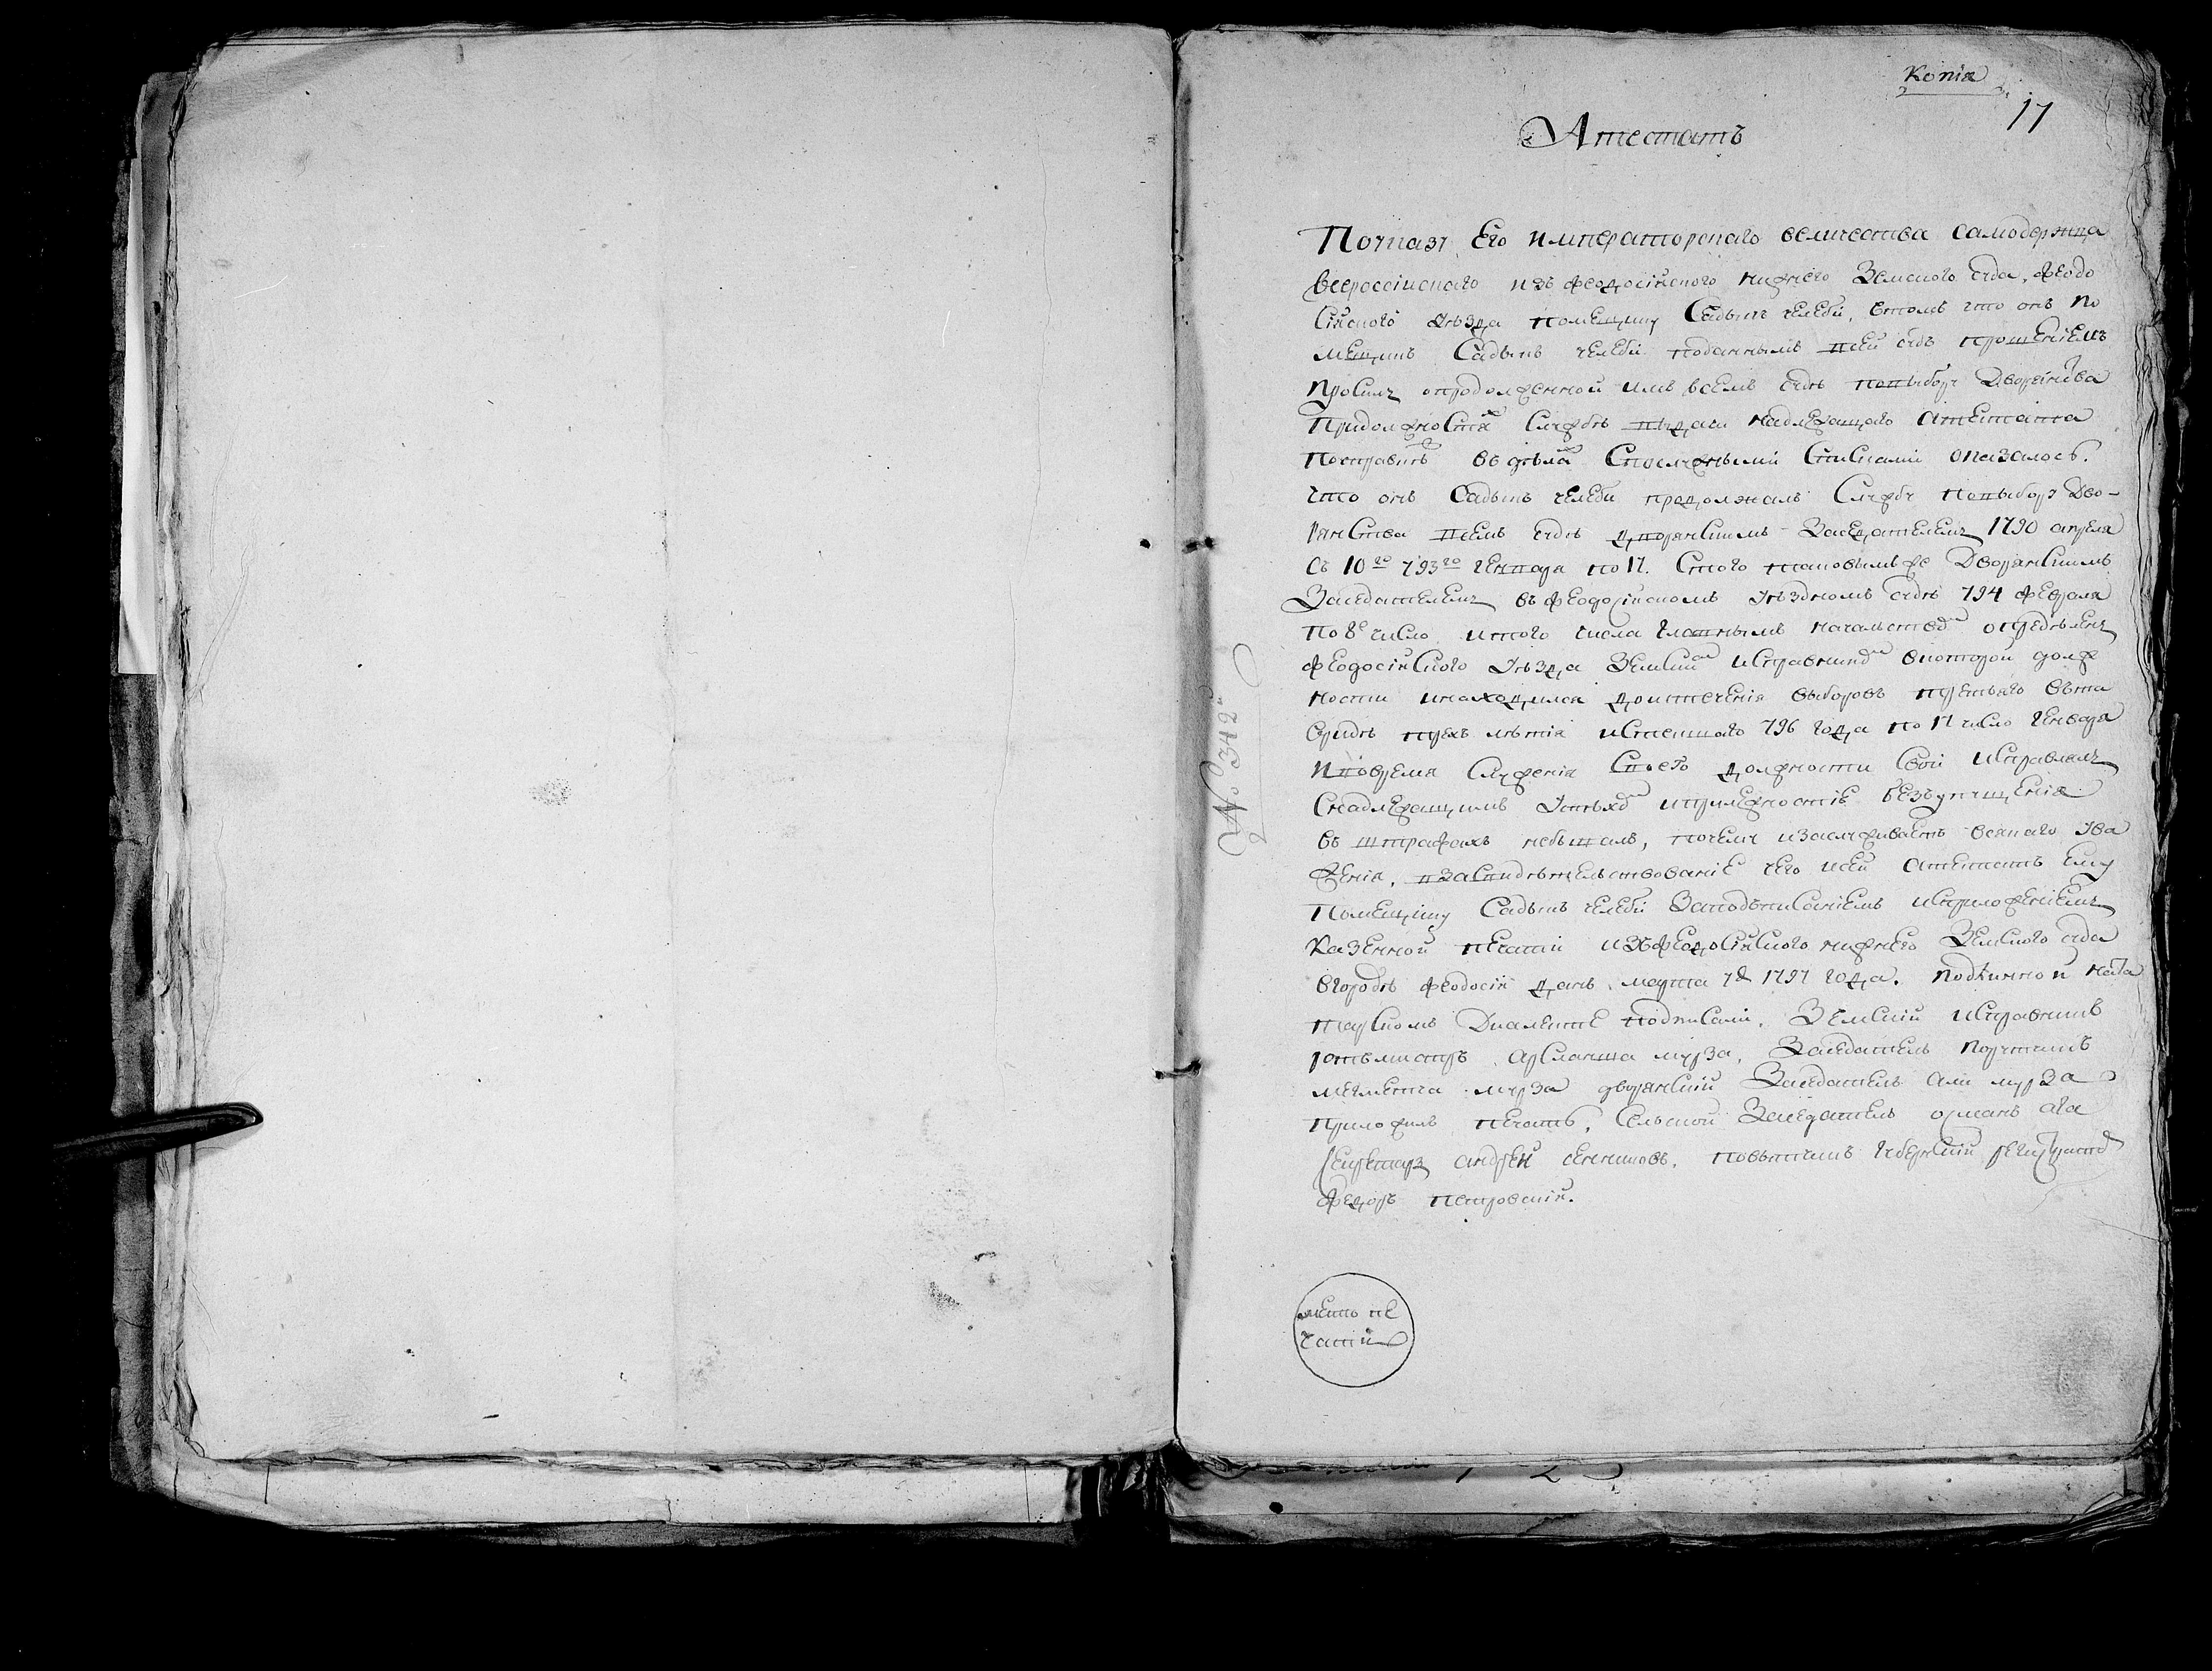 Копія
17
Атестатъ
Поуказу Его императорскаго величества самодержца
всероссійскаго изъ феодосійского нижнего Земского суда, феодо
сійского уѣзда помещику Садыкъ челеби, втомъ что онъ по
мещикъ Садыкъ челеби поданнымъ всей судъ прошениемъ
просилъ опродолженной имъ всемъ судѣ повыбору Дворянства
Придолжностях службѣ выдачи надлежащаго атестата
Посправкѣ въ делах Спослужными Списками оказалось.
что онъ Садыкъ челеби продолжалъ Службу повыбору Дво-
рянства всемъ судѣ дворянскимъ Заседателемъ 1790 апреля
съ 10го 793го генваря по 17. Стого таковымже Дворянскимъ
Заседателемъ въ феодосійскомъ уѣздномъ судѣ 794 февраля
по 8е число итого числа главнымъ начальством определенъ
феодосійского уѣзда Земским исправником вкоторой долж
ности инаходился доистечения выборовъ третьяго въ
трехъ летія истекшаго 796 года по 17 число Генваря
ивовремя Служения Своего должности Свои исправлялъ
Снадлежащимъ успѣхом иприлежностію безъупущения
въ штрафахъ небывалъ, почему изаслуживаетъ всякаго ува
жения, взасвидетельствование чего исей атестатъ ему
Помещику Садыкъ челеби Заподъписаниемъ исприложениемъ
Казенной печати изъфеодосійского нижнего Земского суда
вгородѣ феодосіи данъ марта 7д 1797 года. подлинной ната
тарскомъ Диалекте подписали. Земский исправникъ
ротъмистръ арсланша мурза, Заседатель поручикъ
мегметча мурза дворянский Заседатель али мурза
приложилъ печать, Сельской Заседатель османъ ага
Секретарь андрей повытчикъ губернский регистратор
федоръ петровский.
место пе
чати
№ 312